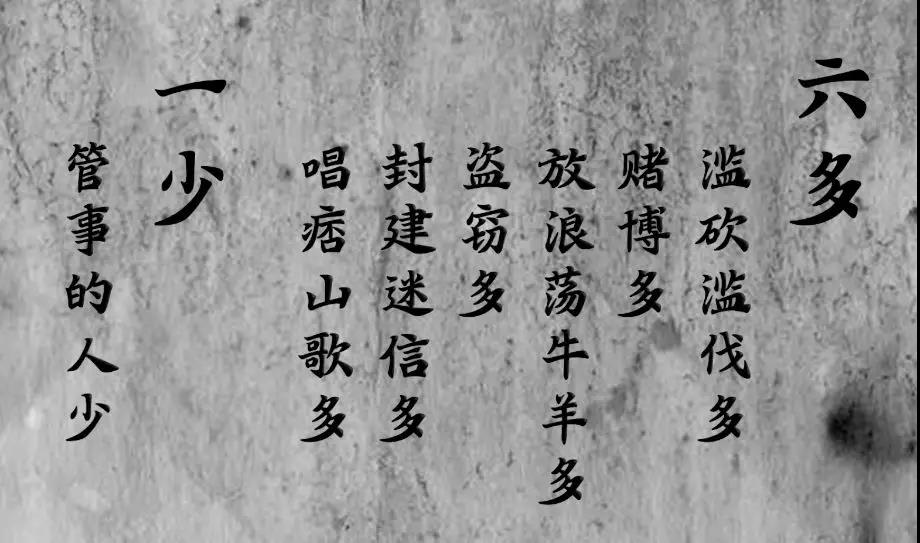 六多
滥砍滥伐多
赌博多
放浪荡牛羊多
盗窃多
封建迷信多
唱痞山歌多
一少
管事的人少